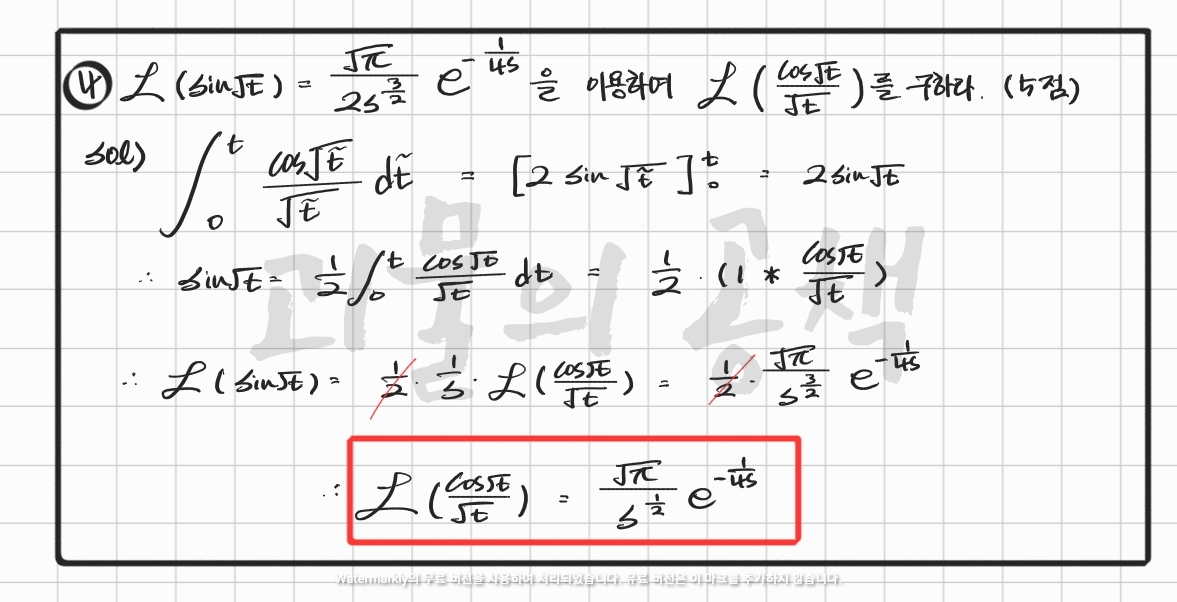 ④ ℒ(sin√t) = √π / 2s^(3/2) e^(-1/4s) 을 이용하여 ℒ(cos√t / √t)를 구하라. (5점)
sol) ∫₀^t cos√t̃ / √t̃ dt̃ = [2 sin√t̃]₀^t = 2sin√t
∴ sin√t = 1/2 ∫₀^t cos√t / √t dt = 1/2 · (1 * cos√t / √t)
∴ ℒ(sin√t) = 1/2 · 1/s · ℒ(cos√t / √t) = 1/2 · √π / s^(3/2) e^(-1/4s)
∴ ℒ(cos√t / √t) = √π / s^(1/2) e^(-1/4s)
괴물의 공책
Watermarkly의 무료 버전을 사용하여 처리되었습니다. 유료 버전은 이 마크를 추가하지 않습니다.